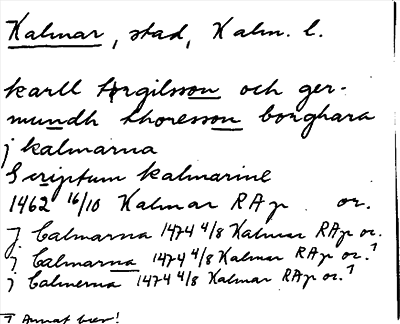 Kalmar, stad, Kalm. l.
karll torgilsson och ger-
mundh thoresson borghara
j kalmarna
Scriptum kalmarine
1462 16/10 Kalmar RAp or.
J Calmarna 1474 4/8 Kalmar RAp or.
j Calmarna 1474 4/8 Kalmar RAp or.1
j Calmerna 1474 4/8 Kalmar RAp or.1
1 Annat brev!